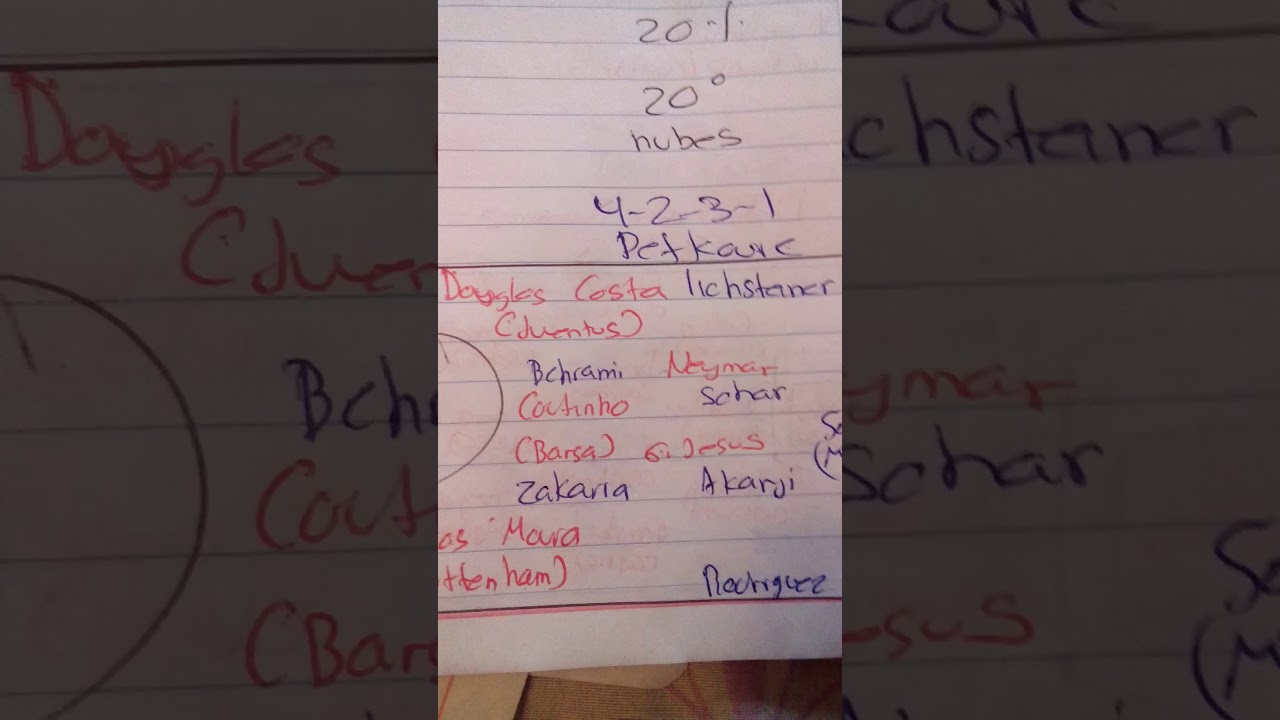 20%
20°
nubes
4-2-3-1
Petkovic
Douglas Costa lichstaner
(Juventus)
Behrami Neymar
Coutinho Schar
(Barsa) G.Jesus
Zakaria Akanji
as Moura
ttenham) Rodriguez